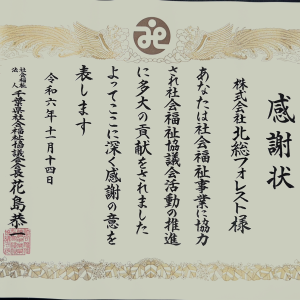 感謝状
株式会社北総フォレスト様
あなたは社会福祉事業に協力
され社会福祉協議会活動の推進
に多大の貢献をされました
よってここに深く感謝の意を
表します
令和六年十一月十四日
社会福祉法人 千葉県社会福祉協議会会長 花島恭一